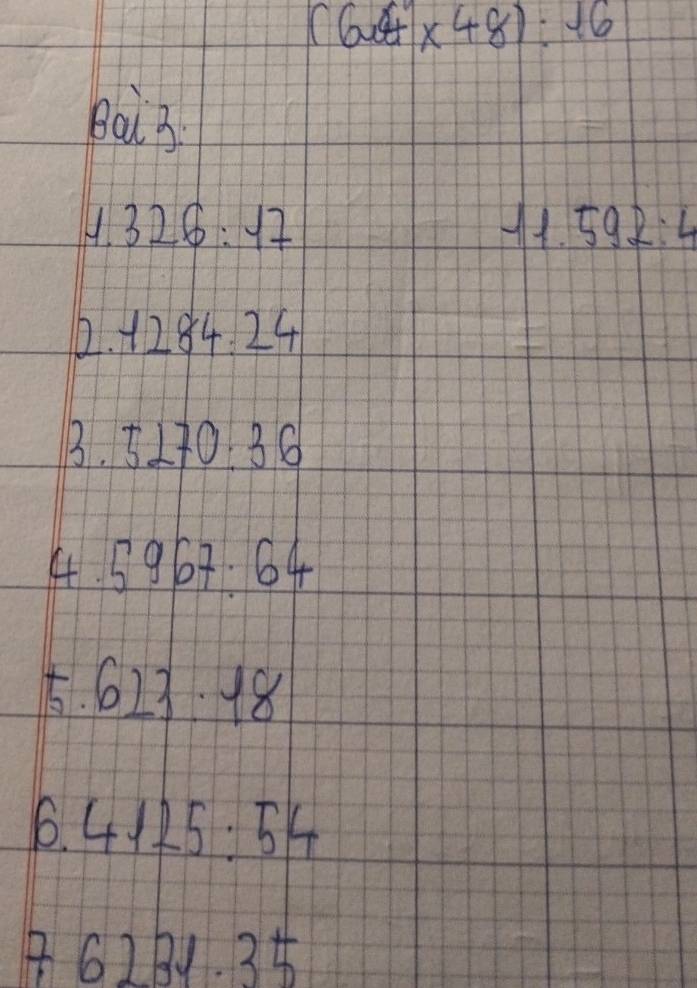 × 48) : 16
Bài 3:
1. 326 : 17
11. 592 : 4
2. 1284 : 24
3. 5270 : 36
4. 5967 : 64
5. 623 : 18
6. 4125 : 54
7 6231 : 35